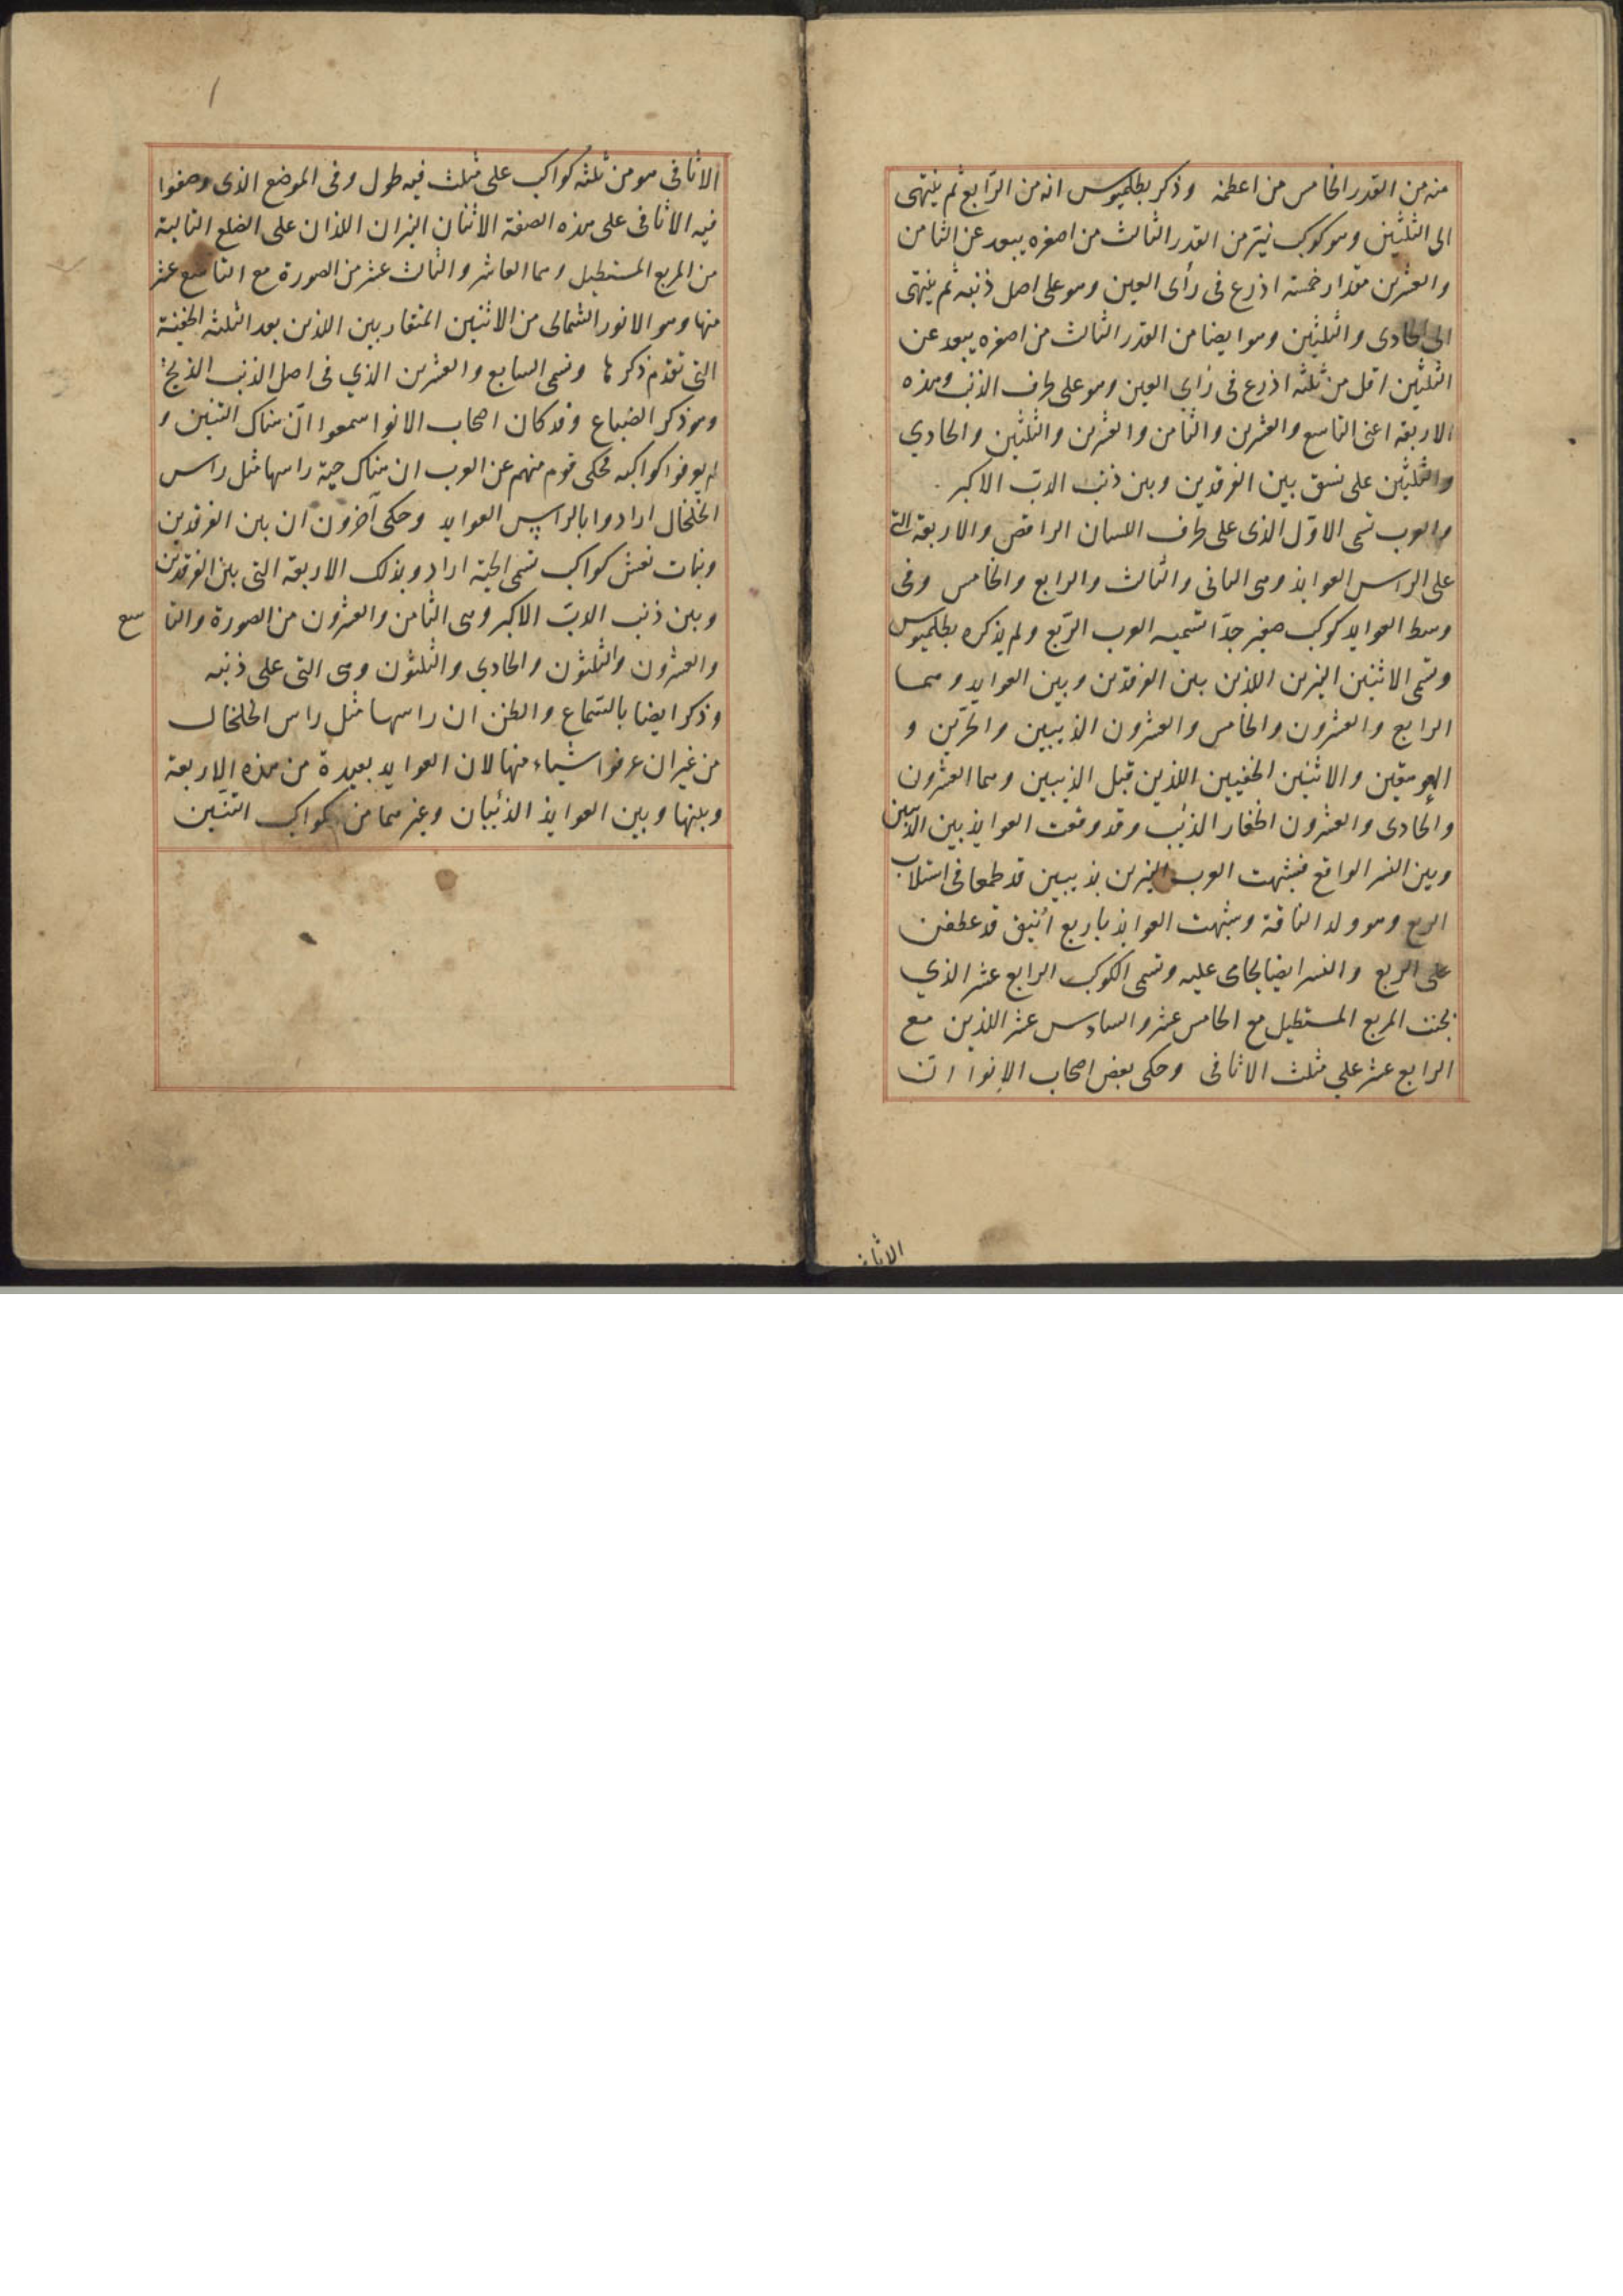 منه من القدر الخامس من اعظمه وذكر بطلميوس انه من الرابع ثم ينتهى
الى الثلثين وهو كوكب نير من القدر الثالث من اصغره يبعد عن الثامن
والعشرين مقدار خمسة اذرع فى رأى العين وهو على اصل ذنبه ثم ينتهى
الى الحادى والثلثين وهو ايضا من القدر الثالث من اصغره يبعد عن
الثلثين اقل من ثلثه اذرع فى رأى العين وهو على طرف الذنب وهذه
الاربعة اعنى التاسع والعشرين والثامن والعشرين والثلثين والحادي
والثلثين على نسق بين الفرقدين وبين ذنب الدب الاكبر .
والعرب تسمى الاوّل الذى على طرف اللسان الراقص والاربعة التى
على الراس العوايذ وهى الثانى والثالث والرابع والخامس وفى
وسط العوايد كوكب صغير جدّا تسميه العرب الرّبع ولم يذكره بطلميوس
وتسمى الاثنين النيرين اللذين بين الفرقدين وبين العوايد وهما
الرابع والعشرون والخامس والعشرون الذيبين والحرّين و
العوهقين والاثنين الخفيين اللذين قبل الذيبين وهما العشرون
والحادى والعشرون اظفار الذئب وقد وقعت العوايذ بين الذيبين
وبين النسر الواقع فشبهت العرب النيرين بذيبين قد طمعا فى استلاب
الربع وهو ولد الناقة وشبهت العوايذ باربع أنيق قد عطفن
على الربع والنسر ايضا يحامى عليه وتسمى الكوكب الرابع عشر الذي
تحت المربع المستطيل مع الخامس عشر والسادس عشر اللذين مع
الرابع عشر على مثلث الاثافى وحكى بعض اصحاب الانوا ان
الاثافى
الاثافى هو من ثلثه كواكب على مثلث فيه طول وفى الموضع الذى وصفوا
فيه الاثافى على هذه الصفة الاثنان النيران اللذان على الضلع التالية
من المربع المستطيل وهما العاشر والثالث عشر من الصورة مع التاسع عشر
منها وهو الانور الشمالى من الاثنين المتقاربين اللذين بعد الثلثه الخفية
التى تقدم ذكرها وتسمى السابع والعشرين الذي فى اصل الذنب الذيخ
وهو ذكر الضباع وقد كان اصحاب الانوا سمعوا انّ هناك التنين و
لم يعرفوا كواكبه فحكى قوم منهم عن العرب ان هناك حية راسها مثل راس
الخلخال ارادوا بالراس العوايد وحكى آخرون ان بين الفرقدين
وبنات نعش كواكب تسمى الحية ارادو بذلك الاربعة التى بين الفرقدين
وبين ذنب الدب الاكبر وهى الثامن والعشرون من الصورة والتا سع
والعشرون والثلثون والحادي والثلثون وهى التى على ذنبه
وذكر ايضا بالسّماع والظن ان راسها مثل راس الخلخال
من غير ان عرفوا شياء منها لان العوايد بعيدة من هذه الاربعة
وبينها وبين العوايذ الذئبان وغيرهما من كواكب التنّين